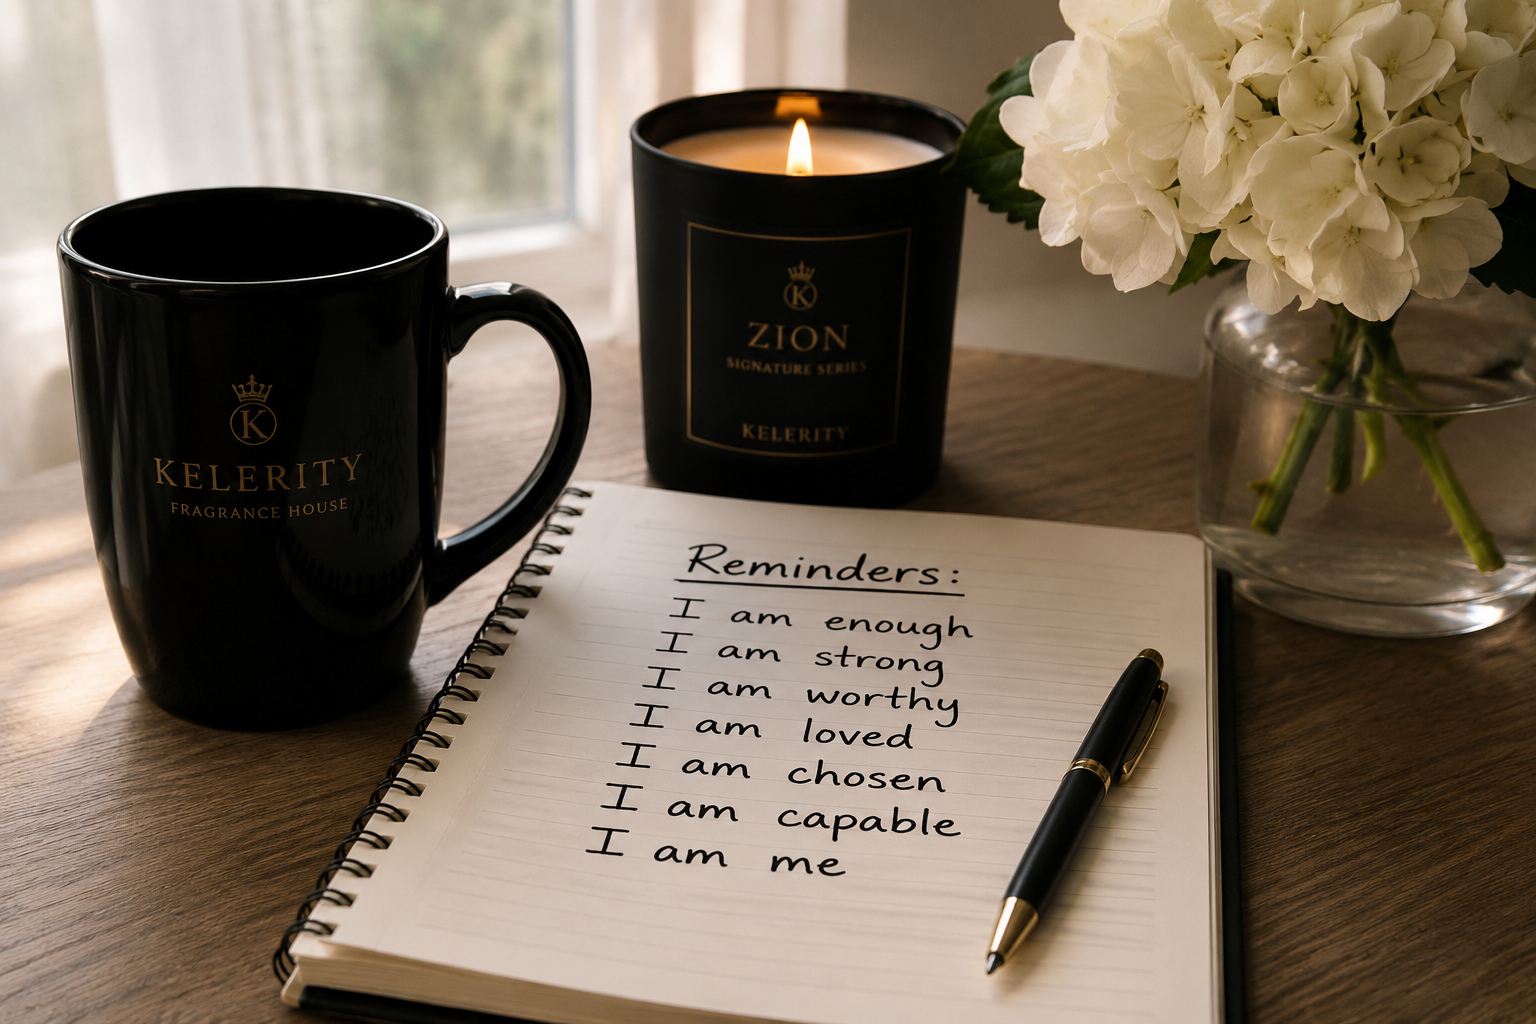 K
KELERITY
FRAGRANCE HOUSE
K
ZION
SIGNATURE SERIES
KELERITY
Reminders:
I am enough
I am strong
I am worthy
I am loved
I am chosen
I am capable
I am me